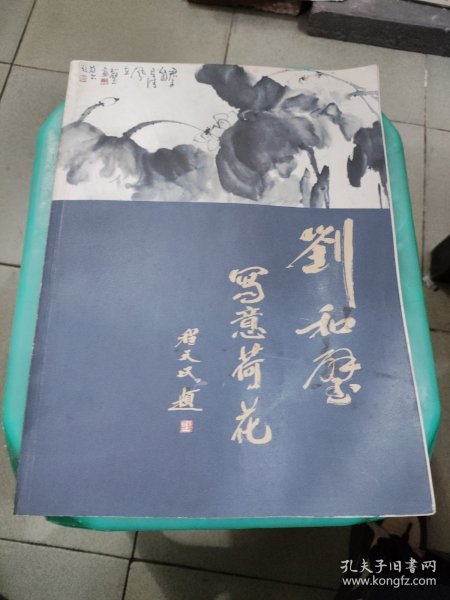 劉和璧
寫意荷花
程天民題
孔夫子旧书网
www.kongfz.com